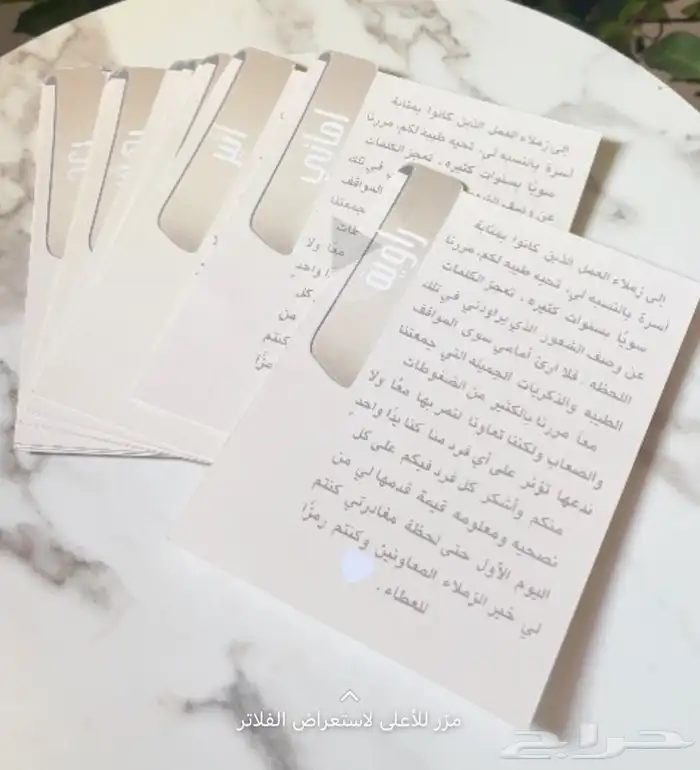 رغد
أثير
أماني
إلى زملاء العمل الذين كانوا بمثابة
أسرة بالنسبه لي، تحيه طيبه لكم، مررنا
سويًا بسنوات كثيره ، تعجز الكلمات
عن وصف الشعور
في تلك
المواقف
جمعتنا
معًا ولا
واحد
كل
من
كنتم
رمزًا
راويه
إلى زملاء العمل الذين كانوا بمثابة
أسرة بالنسبه لي، تحيه طيبه لكم، مررنا
سويًا بسنوات كثيره ، تعجز الكلمات
عن وصف الشعور الذي يراودني في تلك
اللحظه . فلا ارئ أمامي سوى المواقف
الطيبه والذكريات الجميله التي جمعتنا
معاً مررنا بالكثير من الضغوطات
والصعاب ولكننا تعاونا لنمر بها معًا ولا
ندعها تؤثر على أي فرد منا كنا يدًا واحدٍ
منكم وأشكر كل فرد فيكم على كل
نصحيه ومعلومه قيمة قدمها لي من
اليوم الأول حتى لحظة مغادرتي كنتم
لي خير الزملاء المعاونين وكنتم رمزًا
للعطاء .
مرّر للأعلى لاستعراض الفلاتر
حراج